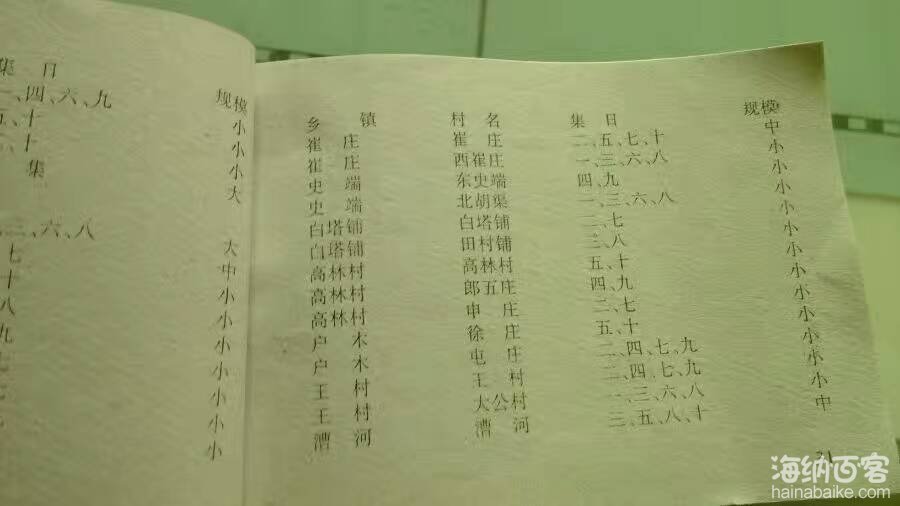 集 日 规模
一、四、六、九 小
五、十 小
十 小
集 大
三、六、八 大
七 中
十 小
八 小
九 小
七 小
小
小
小
乡 镇 村 名 集 日 规模
崔 庄 崔 庄 二、五、七、十 中
崔 庄 西崔庄 一、三、六、八 小
史 端 东史端 四、九 小
史 端 北胡渠 一、三、六、八 小
白塔铺 白塔铺 二、七 小
白塔铺 田村铺 三、八 小
高林村 高林村 五、十 小
高林村 郎五庄 四、九 小
高林村 申 庄 二、七 小
户 木 徐 庄 五、十 小
户 木 屯 庄 二、四、七、九 小
王 村 王 村 二、四、七、九 小
王 村 大公村 一、三、六、八 小
漕 河 漕 河 三、五、八、十 中
海纳百客
hainabaike.com